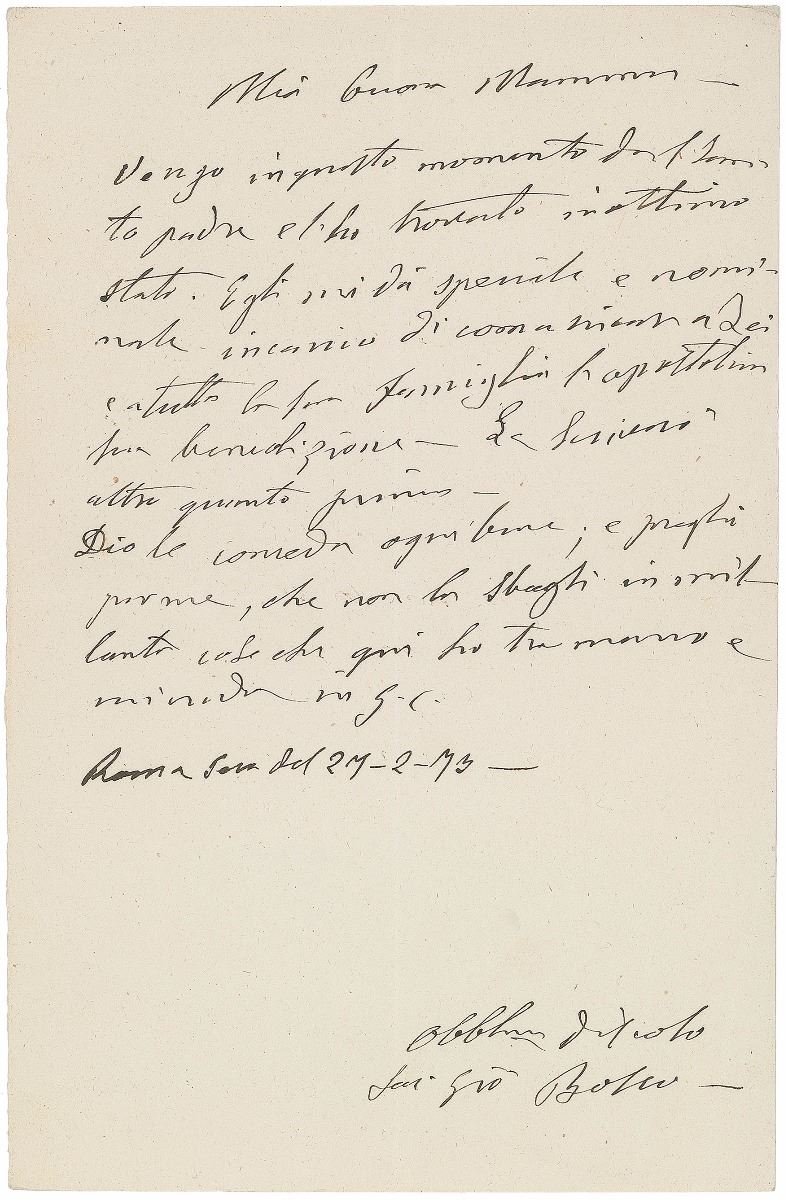 Mia buona Mamma —
Vengo in questo momento dal San-
to padre e l'ho trovato in ottimo
stato. Egli mi dà speciale e nomi-
nale incarico di comunicare a Lei
e a tutta la sua famiglia l'apostolica
sua benedizione — Le scriverò
altro quanto prima —
Dio le conceda ogni bene; e preghi
per me, che non la sbagli in mil-
lanta cose che qui ho tra mano e
mi creda in G. C.
Roma sera del 27-2-73 —
Obblmo
Sac. Gio Bosco —